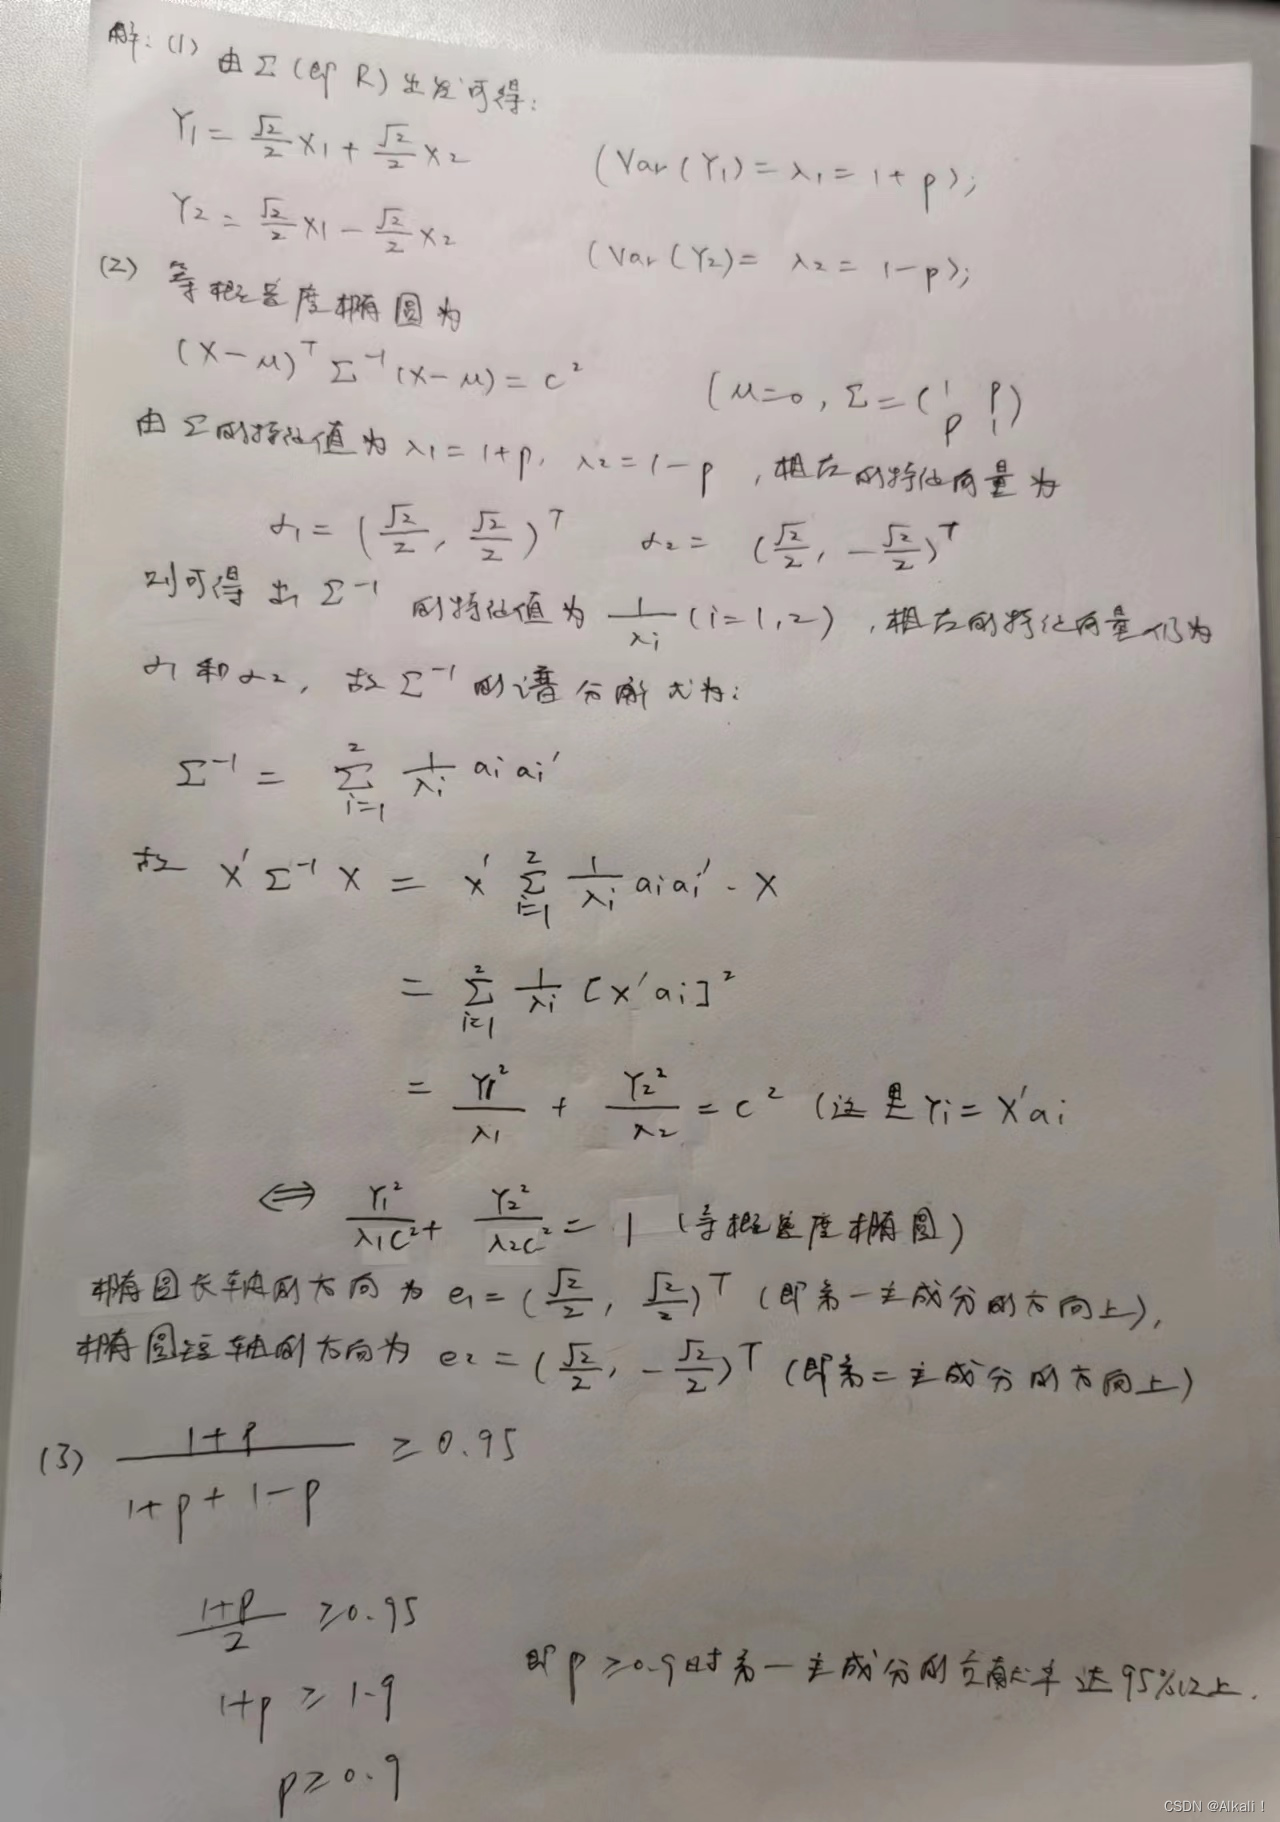 解:(1) 由Σ(即R)出发可得:
Y₁ = √2/2 X₁ + √2/2 X₂ (Var(Y₁) = λ₁ = 1+ρ);
Y₂ = √2/2 X₁ − √2/2 X₂ (Var(Y₂) = λ₂ = 1−ρ);
(2) 等概密度椭圆为
(X−μ)ᵀ Σ⁻¹ (X−μ) = c² (μ=0, Σ = (1 ρ
ρ 1)
由Σ的特征值为 λ₁=1+ρ, λ₂=1−ρ, 相应的特征向量为
α₁ = (√2/2, √2/2)ᵀ α₂ = (√2/2, −√2/2)ᵀ
则可得出 Σ⁻¹ 的特征值为 1/λi (i=1,2), 相应的特征向量仍为
α₁和α₂, 故Σ⁻¹的谱分解式为:
Σ⁻¹ = Σ_{i=1}^{2} 1/λi ai ai′
故 X′Σ⁻¹X = X′ Σ_{i=1}^{2} 1/λi ai ai′ · X
= Σ_{i=1}^{2} 1/λi [X′ai]²
= Y₁²/λ₁ + Y₂²/λ₂ = c² (这里Yi = X′ai
⇔ Y₁²/λ₁c² + Y₂²/λ₂c² = 1 (等概密度椭圆)
椭圆长轴的方向为 e₁ = (√2/2, √2/2)ᵀ (即第一主成分的方向上),
椭圆短轴的方向为 e₂ = (√2/2, −√2/2)ᵀ (即第二主成分的方向上)
(3) (1+ρ)/(1+ρ+1−ρ) ≥ 0.95
(1+ρ)/2 ≥ 0.95
1+ρ ≥ 1.9 即ρ≥0.9时第一主成分的贡献率达95%以上.
ρ ≥ 0.9
CSDN @Alkali！